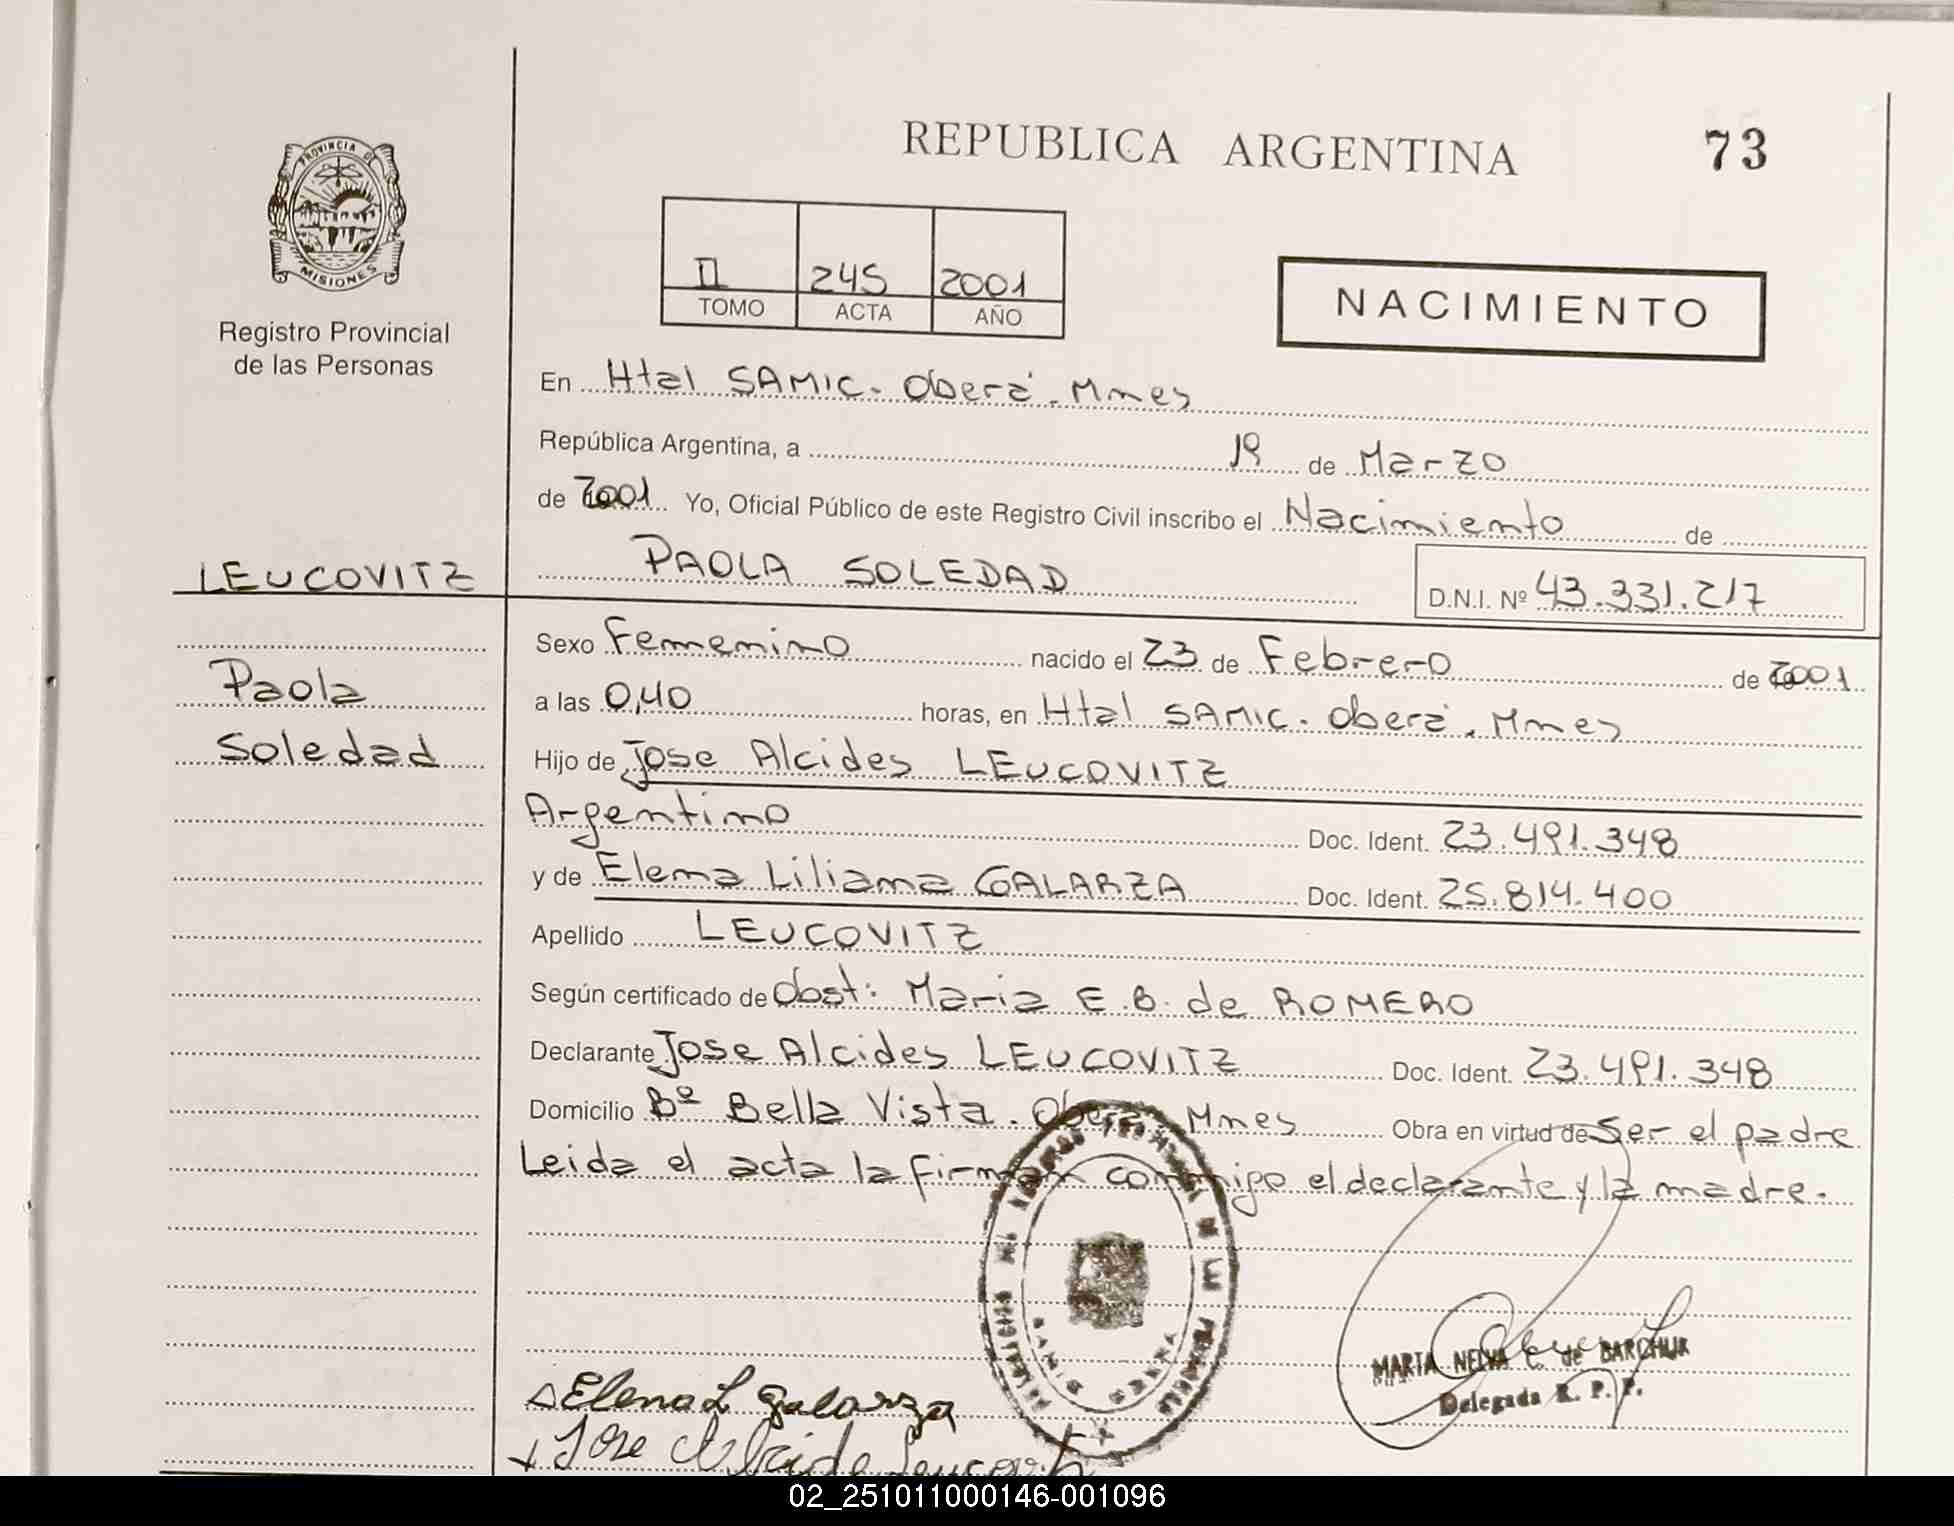 REPUBLICA ARGENTINA
73
PROVINCIA DE
MISIONES
Registro Provincial
de las Personas
II 245 2001
TOMO ACTA AÑO
NACIMIENTO
En Htal SAMIC. Oberá. Mnes
República Argentina, a 19 de Marzo
de 2001 Yo, Oficial Público de este Registro Civil inscribo el Nacimiento de
PAOLA SOLEDAD D.N.I. Nº 43.331.217
LEUCOVITZ
Paola
Soledad
Sexo Femenino nacido el 23 de Febrero de 2001
a las 0,40 horas, en Htal SAMIC. Oberá. Mnes
Hijo de Jose Alcides LEUCOVITZ
Argentino Doc. Ident. 23.491.348
y de Elena Liliana GALARZA Doc. Ident. 25.814.400
Apellido LEUCOVITZ
Según certificado de Obst: Maria E.B. de ROMERO
Declarante Jose Alcides LEUCOVITZ Doc. Ident. 23.491.348
Domicilio Bº Bella Vista. Oberá. Mnes Obra en virtud de Ser el padre
Leida el acta la firman conmigo el declarante y la madre.
MARIA NELVA C. de
Delegada R. P. P.
Elena L Galarza
Jose Alcide Leucovitz
02_251011000146-001096